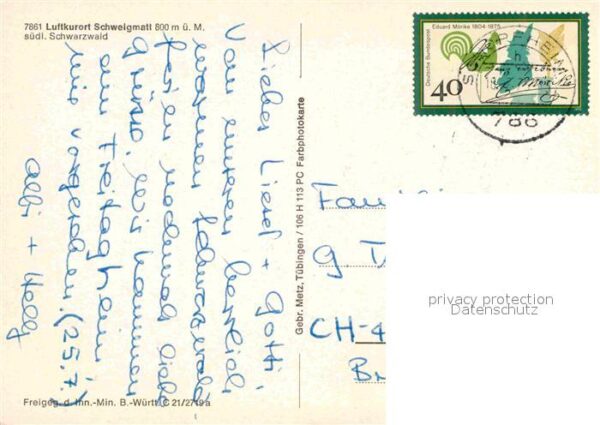 7861 Luftkurort Schweigmatt 800 m ü. M.
südl. Schwarzwald
Eduard Mörike 1804-1875
Deutsche Bundespost
40
E. Mörike
786
Liebes Liesel + Gotti,
von unserem herrlich
Schwarzwald
noch mal liebe
Grüsse. Wir kommen
am Freitag heim
wie vorgesehen. (25.7.)
+ Helly
Gebr. Metz, Tübingen / 106 H 113 PC Farbphotokarte
Fam
g
CH-4
B
privacy protection
Datenschutz
Freigeg. d. Inn.-Min. B.-Württ. C 21/2719a